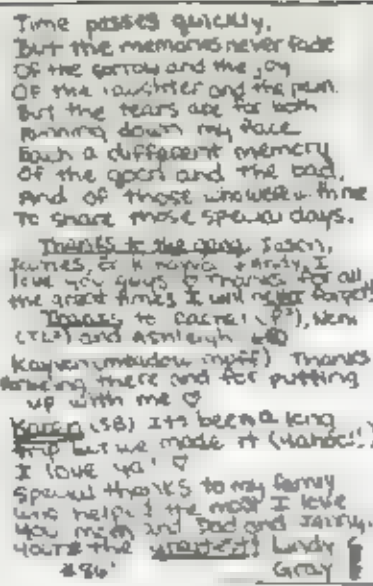 Time passes quickly,
But the memories never fade
Of the sorrow and the joy
Of the laughter and the pain.
But the tears are for both
Running down my face
Each a different memory
Of the good and the bad.
And of those who were there
To share those special days.
Thanks to the gang, Jason,
James, & Andy, I
love you guys Thanks for all
the great times I will never forget!
Thanks to
and Ashleigh
Thanks
being there and for putting
up with me ♡
Karen (SB) It's been a long
trip but we made it
I love ya! ♡
Special thanks to my family
who helped the most I love
you mom and Dad and
You're the greatest! Lindy
#86 Gray